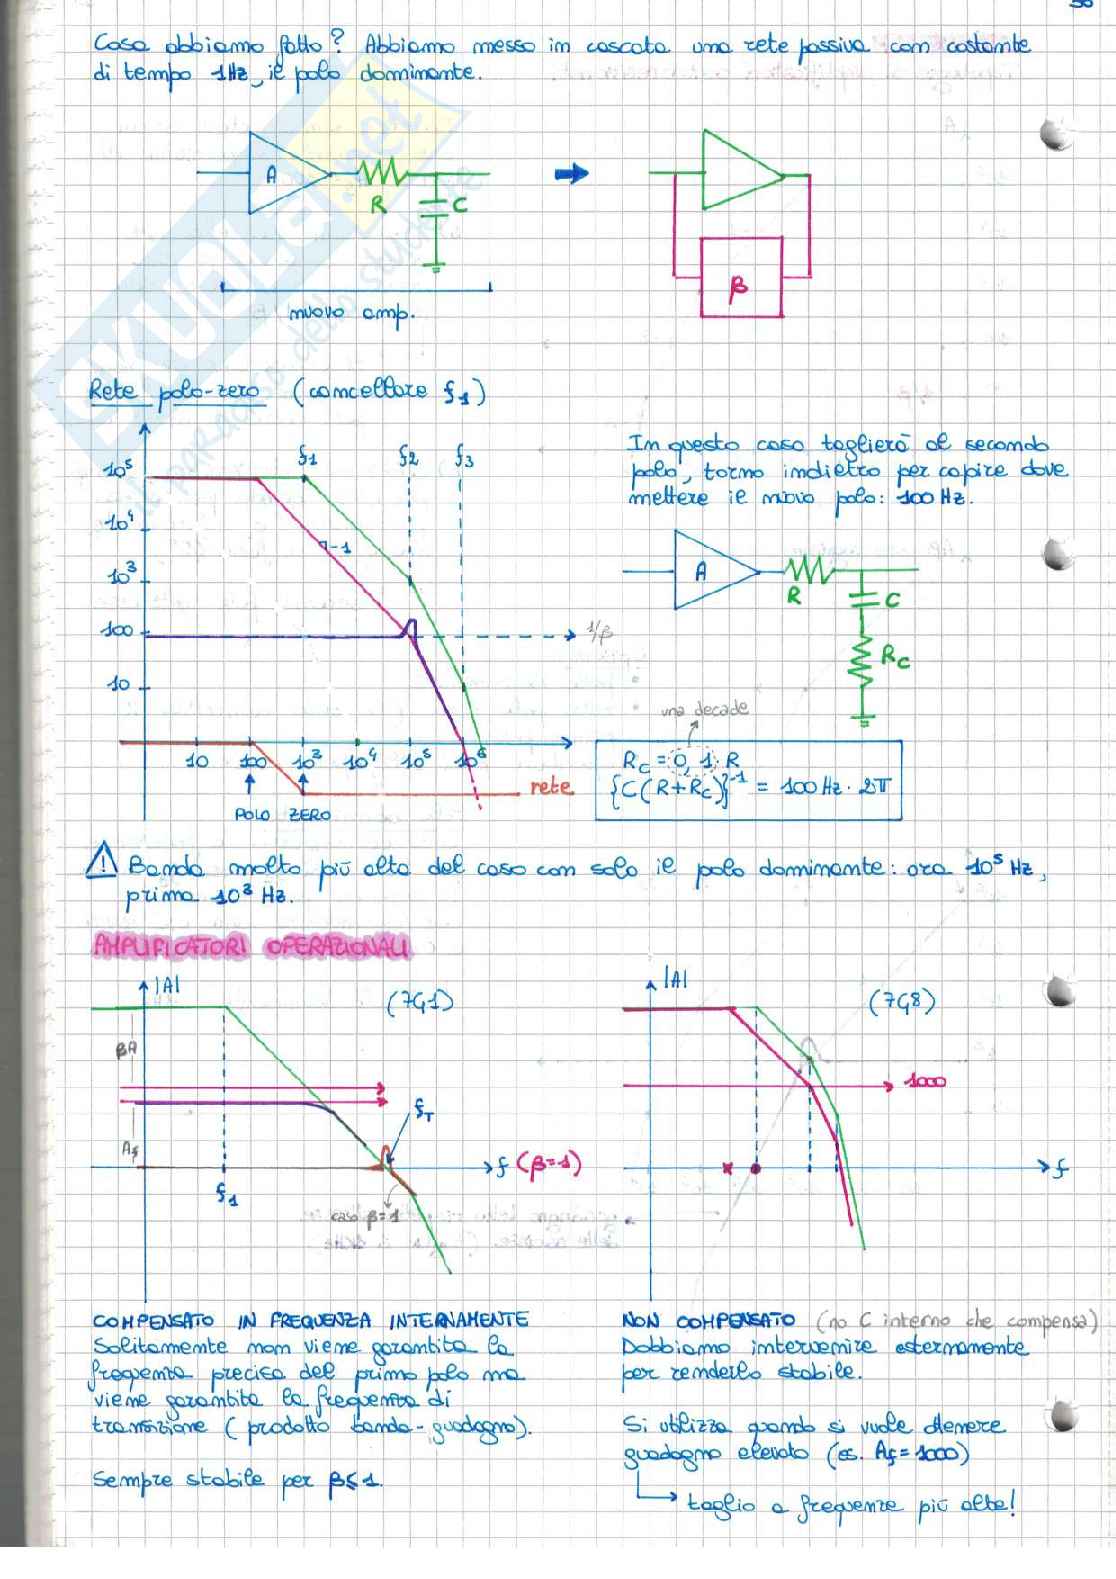 Cosa abbiamo fatto? Abbiamo messo in cascata una rete passiva con costante
di tempo 1Hz, il polo dominante.
A
R
C
β
nuovo amp.
Rete polo-zero (cancellare f1)
f1
f2
f3
10⁵
10⁴
10³
100
10
-1
1/β
10
100
10³
10⁴
10⁵
10⁶
rete
POLO
ZERO
In questo caso taglierò al secondo
polo, torno indietro per capire dove
mettere il nuovo polo: 100 Hz.
A
R
C
Rc
una decade
Rc = 0,1·R
{C(R+Rc)}⁻¹ = 100Hz · 2π
Banda molto più alta del caso con solo il polo dominante: ora 10⁵ Hz,
prima 10³ Hz.
AMPLIFICATORI OPERAZIONALI
|A|
(741)
βA
Af
f1
fT
f (β=1)
caso β=1
|A|
(748)
1000
f
COMPENSATO IN FREQUENZA INTERNAMENTE
Solitamente non viene garantita la
frequenza precisa del primo polo ma
viene garantita la frequenza di
transizione (prodotto banda-guadagno).
Sempre stabile per β≤1.
NON COMPENSATO (no C interno che compensa)
Dobbiamo intervenire esternamente
per renderlo stabile.
Si utilizza quando si vuole ottenere
guadagno elevato (es. Af=1000)
taglio a frequenze più alte!
SKUOLA.net